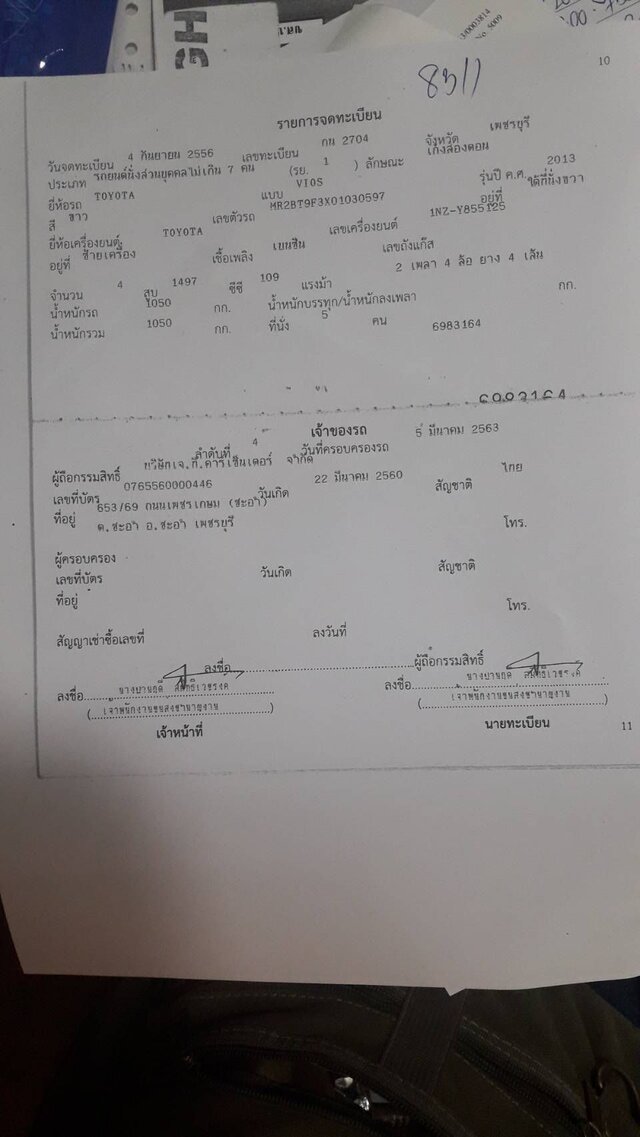 GH
340003814
No. 5009
8311
10
รายการจดทะเบียน
วันจดทะเบียน 4 กันยายน 2556 เลขทะเบียน กน 2704 จังหวัด เพชรบุรี
ประเภท รถยนต์นั่งส่วนบุคคลไม่เกิน 7 คน (รย. 1 ) ลักษณะ เก๋งสองตอน
ยี่ห้อรถ TOYOTA แบบ VIOS รุ่นปี ค.ศ. 2013
สี ขาว เลขตัวรถ MR2BT9F3X01030597 อยู่ที่ ใต้ที่นั่งขวา
ยี่ห้อเครื่องยนต์ TOYOTA เลขเครื่องยนต์ 1NZ-Y855125
อยู่ที่ ซ้ายเครื่อง เชื้อเพลิง เบนซิน เลขถังแก๊ส
จำนวน 4 สูบ 1497 ซีซี 109 แรงม้า 2 เพลา 4 ล้อ ยาง 4 เส้น
น้ำหนักรถ 1050 กก. น้ำหนักบรรทุก/น้ำหนักลงเพลา กก.
น้ำหนักรวม 1050 กก. ที่นั่ง 5 คน 6983164
เจ้าของรถ
ลำดับที่ 4 วันที่ครอบครองรถ 5 มีนาคม 2563
ผู้ถือกรรมสิทธิ์ บริษัทเจ.ที.คาร์เซ็นเตอร์ จำกัด
เลขที่บัตร 0765560000446 วันเกิด 22 มีนาคม 2560 สัญชาติ ไทย
ที่อยู่ 653/69 ถนนเพชรเกษม (ชะอำ)
ต.ชะอำ อ.ชะอำ เพชรบุรี โทร.
ผู้ครอบครอง
เลขที่บัตร วันเกิด สัญชาติ
ที่อยู่ โทร.
สัญญาเช่าซื้อเลขที่ ลงวันที่
ลงชื่อ ผู้ถือกรรมสิทธิ์
ลงชื่อ ลงชื่อ
(เจ้าพนักงานขนส่งชำนาญงาน) (เจ้าพนักงานขนส่งชำนาญงาน)
เจ้าหน้าที่ นายทะเบียน
11